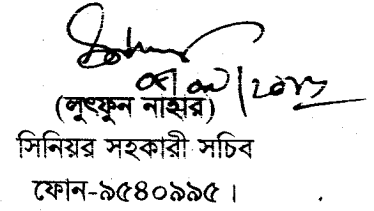 (লুৎফুন নাহার)
সিনিয়র সহকারী সচিব
ফোন-৯৫৪০৯৯৫।